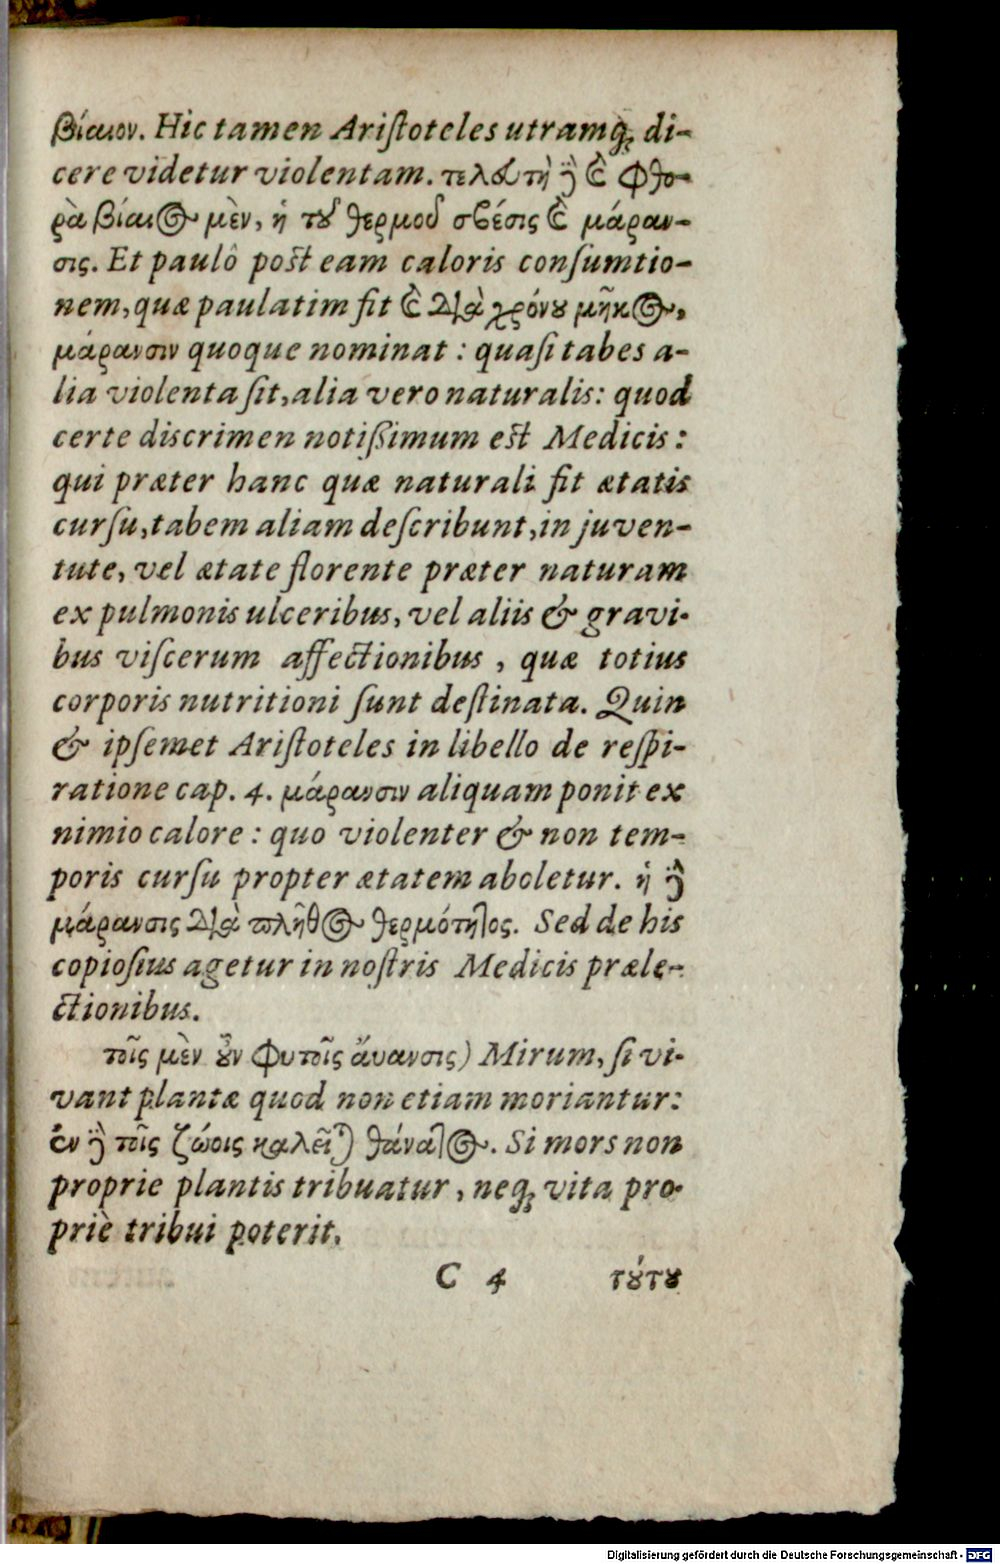 βίαιον. Hic tamen Ariſtoteles utramq́; di-
cere videtur violentam. τελευτὴ δὲ καὶ φθο-
ρὰ βίαιος μὲν, ἡ τοῦ θερμοῦ σβέσις καὶ μάραν-
σις. Et paulò poſt eam caloris conſumtio-
nem, quæ paulatim fit καὶ διὰ χρόνου μῆκος,
μάρανσιν quoque nominat : quaſi tabes a-
lia violenta ſit, alia vero naturalis: quod
certe discrimen notißimum eſt Medicis:
qui præter hanc quæ naturali fit ætatis
curſu, tabem aliam deſcribunt, in juven-
tute, vel ætate florente præter naturam
ex pulmonis ulceribus, vel aliis & gravi-
bus viſcerum affectionibus , quæ totius
corporis nutritioni ſunt deſtinata. Quin
& ipſemet Ariſtoteles in libello de reſpi-
ratione cap. 4. μάρανσιν aliquam ponit ex
nimio calore : quo violenter & non tem-
poris curſu propter ætatem aboletur. ἡ δὲ
μάρανσις διὰ πλῆθος θερμότητος. Sed de his
copioſius agetur in noſtris Medicis præle-
ctionibus.
τοῖς μὲν οὖν φυτοῖς αὔανσις) Mirum, ſi vi-
vant plantæ quod non etiam moriantur:
ἐν δὲ τοῖς ζώοις καλεῖται θάνατος. Si mors non
proprie plantis tribuatur , neq́; vita pro-
priè tribui poterit.
C 4 τούτου
Digitalisierung gefördert durch die Deutsche Forschungsgemeinschaft - DFG